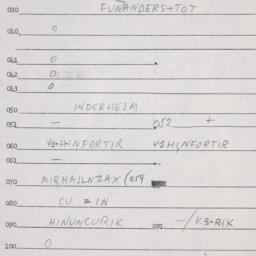 020 FUNANDERS+TOT
040, 0
041 0
042 0
043 0
050 INDERHEJM
051 — 052 +
060 V1HINFORTIR V1HINFORTIR
061 —
070 MIRHAJLNZAX (059
080 CU = IN
090 HINUNCURIK 091 -/K3-RIK
100 0